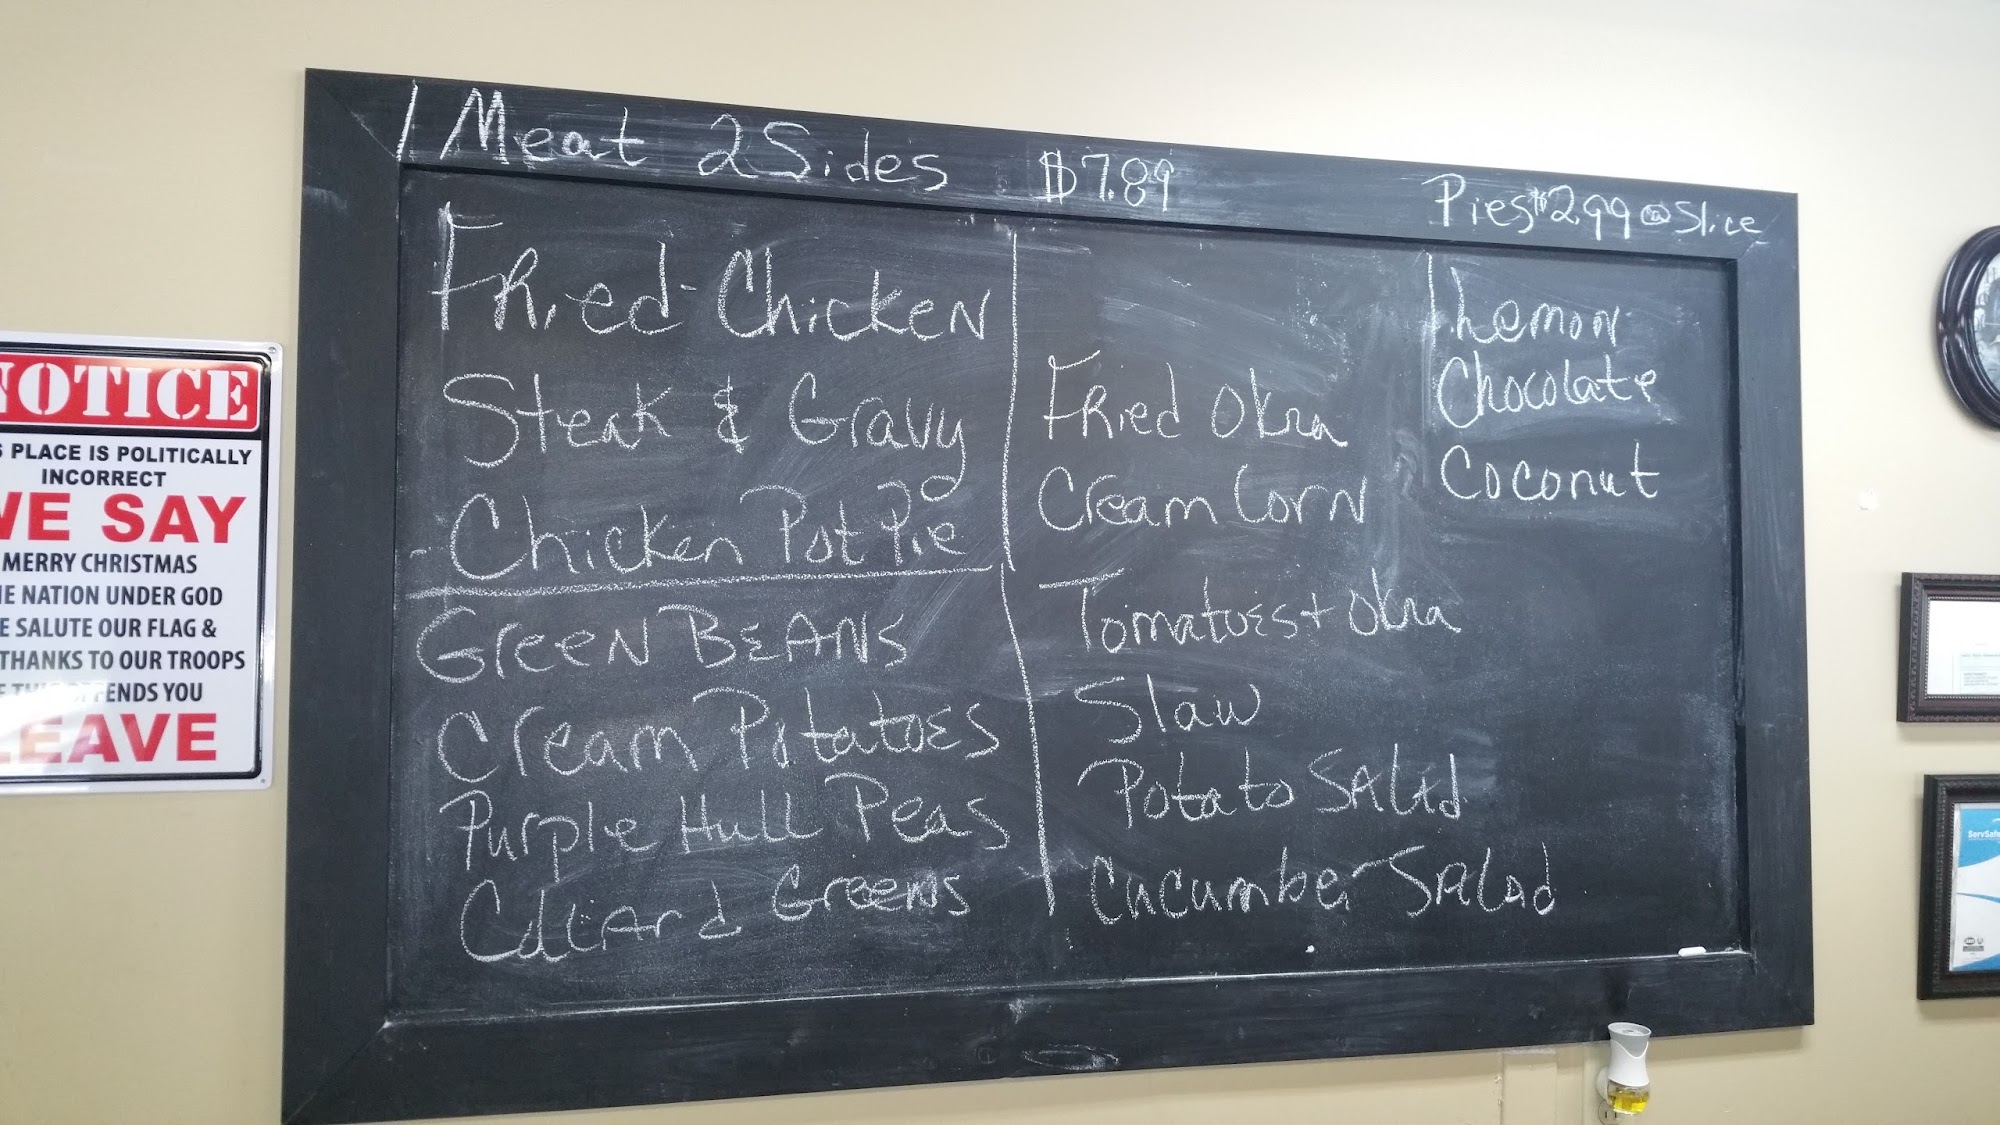 1 Meat 2 Sides $7.89
Pies $2.99 @ Slice
Fried Chicken
Steak & Gravy
Chicken Pot Pie
Green Beans
Cream Potatoes
Purple Hull Peas
Collard Greens
Fried Okra
Cream Corn
Tomatoes + Okra
Slaw
Potato Salad
Cucumber Salad
Lemon
Chocolate
Coconut
NOTICE
PLACE IS POLITICALLY
INCORRECT
WE SAY
MERRY CHRISTMAS
NATION UNDER GOD
SALUTE OUR FLAG &
THANKS TO OUR TROOPS
OFFENDS YOU
LEAVE
ServSafe